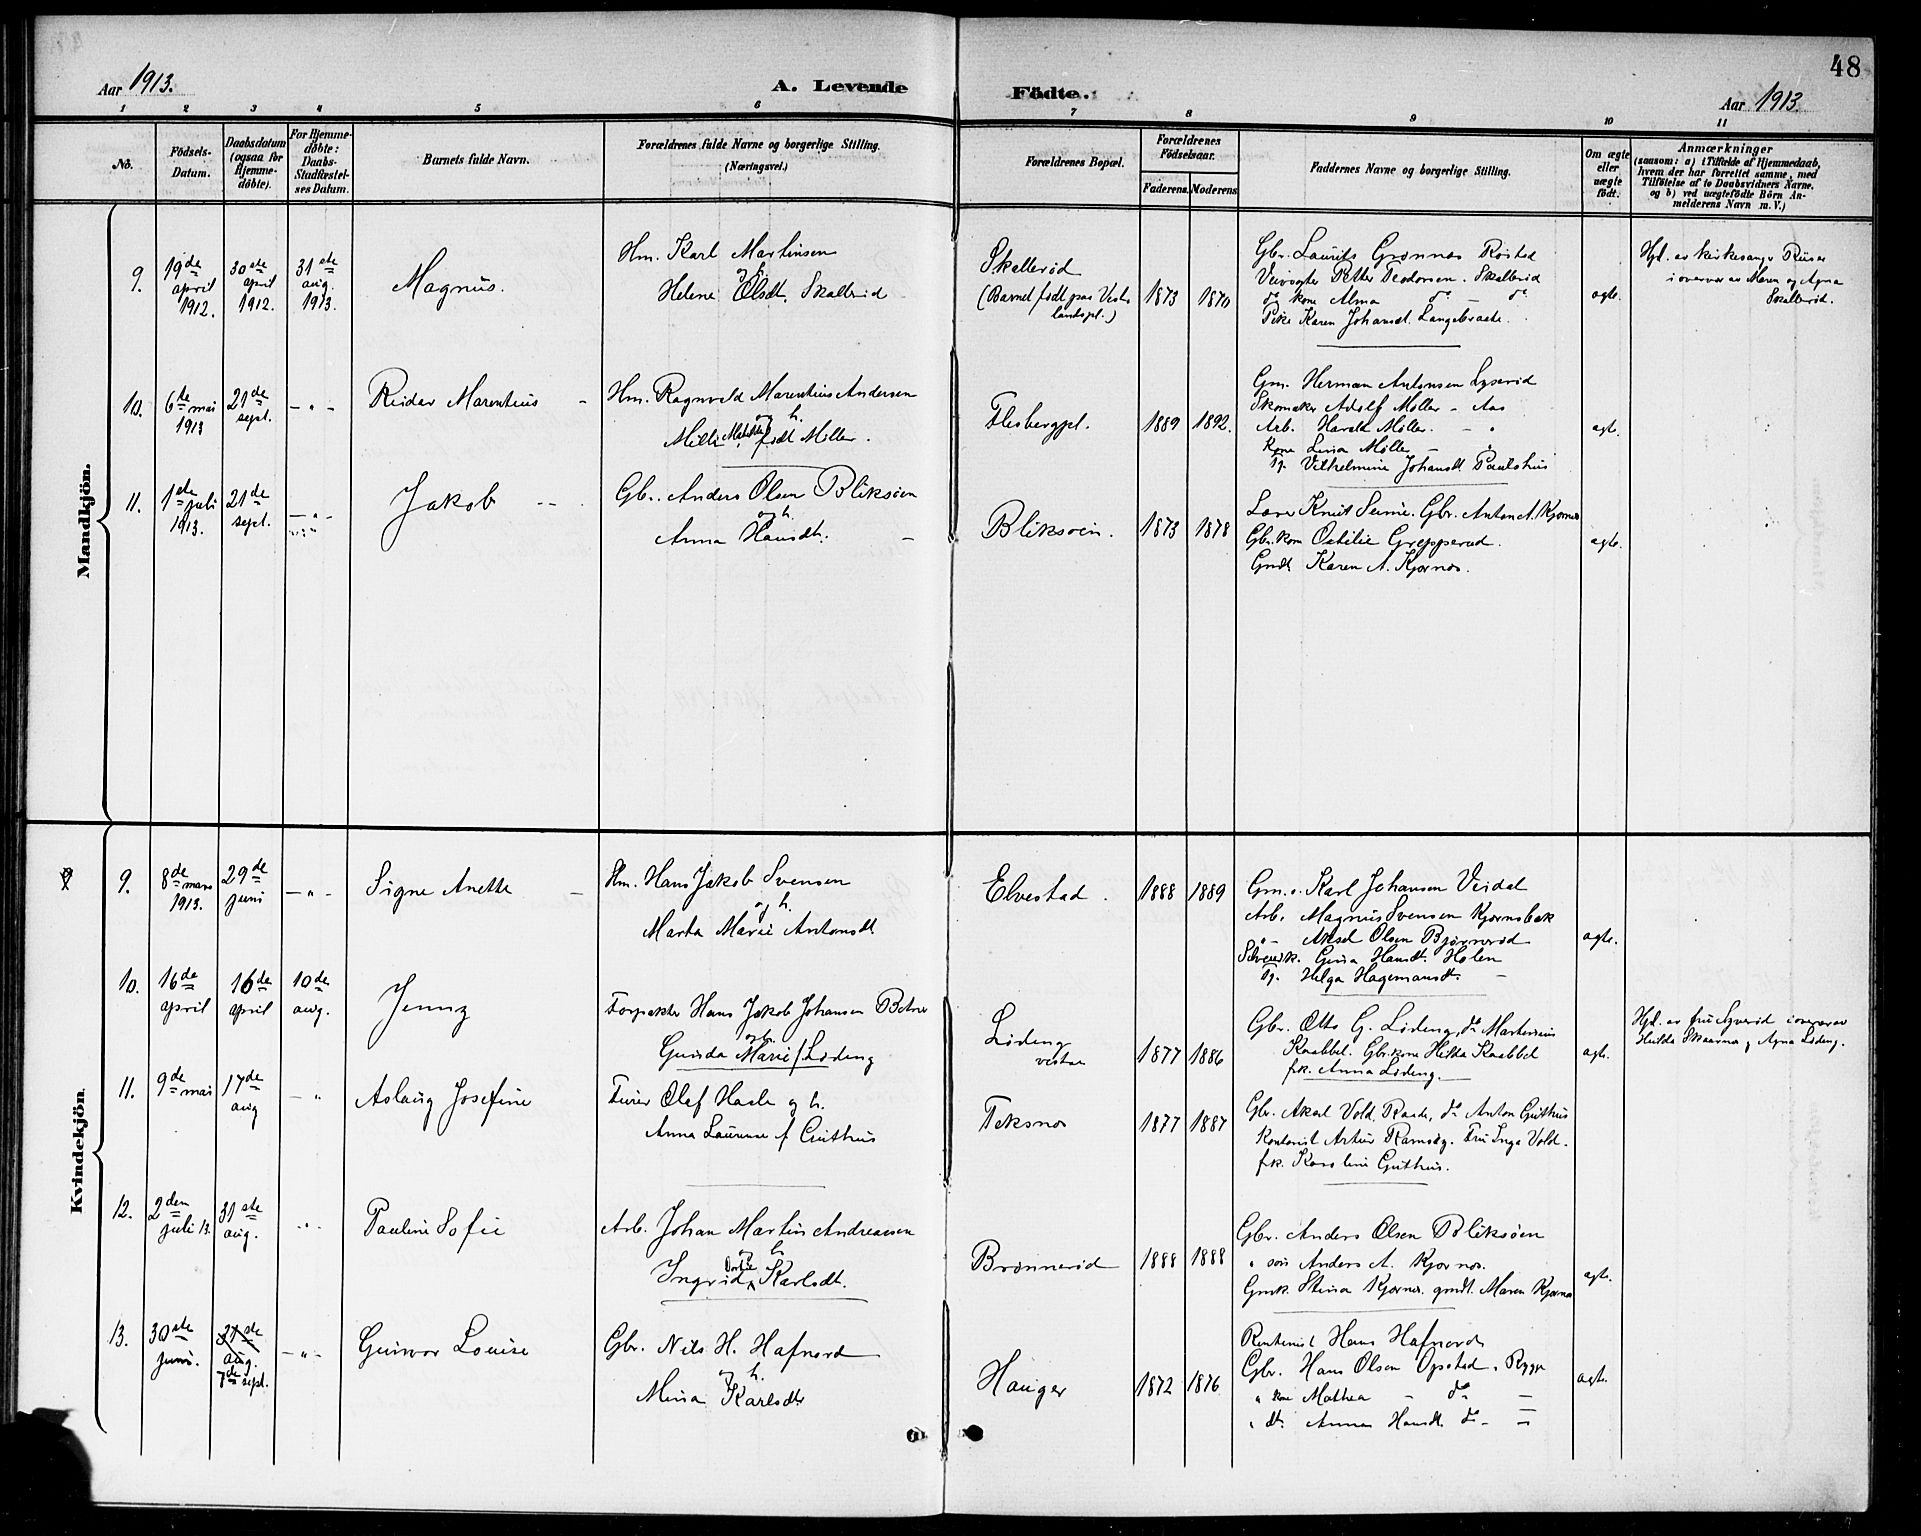 48
Aar 1913.
A. Levende Födte.
Aar 1913.
1 2 3 4 5 6 7 8 9 10 11
No.
Födsels-
Datum.
Daabsdatum
(ogsaa for
Hjemme-
döbte).
For Hjemme-
döbte:
Daabs-
Stadfæstel-
ses Datum.
Barnets fulde Navn.
Forældrenes fulde Navne og borgerlige Stilling.
(Næringsvei.)
Forældrenes Bopæl.
Forældrenes
Födselsaar.
Faderens. Moderens.
Faddernes Navne og borgerlige Stilling.
Om ægte
eller
uægte
födt.
Anmærkninger
(saasom: a) i Tilfælde af Hjemmedaab,
hvem der har forrettet samme, med
Tilföielse af to Daabsvidners Navne.
og b) ved uægtefödte Börn An-
melderens Navn m. V.)
Mandkjön.
9. 19de april 1912. 30te april 1912. 31ste aug. 1913.
Magnus.
Hm. Karl Martinsen
og h.
Helene Olsdt. Skallerud
Skallerød
(Barnet født paa Vest-
landspl.)
1873 1870
Gbr. Laurits Grønnes Røstad
Veivogter Petter Teodorsen. Skallerød
do kone Alma do - do
Pike Karen Johansdt. Langebraate.
egte.
Hjd. av kirkesanger Riiser
i overvær av Maren og Agna
Skallerød.
10. 6te mai 1913 21de sept. - " -
Reidar Marentius -
Hm. Ragnvald Marentius Andersen
og h.
Milli Matilde født Møller.
Flesbergpl.
1889 1892.
Gm. Herman Antonsen Lyserød
Skomaker Adolf Møller - Aas
Arb. Harald Møller. - "
Kone Lina Møller - "
Tj. Vilhelmine Johansdt. Paulshus
egt.
11. 1ste juli 1913. 21de sept. - " -
Jakob - -
Gbr. Anders Olsen Bliksøen
og h.
Anna Hansdt. -
Bliksøen.
1873 1878
Lærer Knut Seime. Gbr. Anton A. Kjørnes
Gbr.kone Otilie Grepperud.
Gmdt. Karen A. Kjørnes.
egte.
Kvindekjön.
9. 8de mars 1913. 29de juni - " -
Signe Anette -
Hm. Hans Jakob Svensen
og h.
Marta Marie Antonsdt.
Elvestad.
1888 1889
Gm.s. Karl Johansen Veidal
Arb. Magnus Svensen Kjørnsbak
" - Aksel Olsen Bjørnerød
Gina Hansdt. Holen
Tj. Helga Hagemansdt. -
egte.
10. 16de april 16de april 10de aug.
Jenny
Forpakter Hans Jakob Johansen Botner
og h.
Gunda Marie f. Lødeng
Lødeng
vestre
1877 1886
Gbr. Otto G. Lødeng, do Martinius
Knabbel. Gbr.kone Hilda Knabbel
frk. Anna Lødeng.
egte.
Hjd. av fru Syverud i overvær av
Hulda Skaarnes og Agna Lødeng.
11. 9de mai 17de aug - "
Aslaug Josefine
Olaf Hasle og h.
Anna Laurense f. Guthus
Teksnes
1877 1887
Gbr. Aksel Vold, Raade, do Anton Guthus
Kontorist Artur Ramsøy. Fru Inga Vold.
frk. Karoline Guthus.
12. 2den juli 13. 31ste aug. - " -
Pauline Sofie
Arb. Johan Martin Andreassen
og h.
Ingrid Karlsdt.
Brønnerød
1888 1888
Gbr. Anders Olsen Bliksøen
" søn Anders A. Kjørnes.
Gmk. Stina Kjørnes. gmdt. Maren Kjørnes
egte.
13. 30te juni. 31ste aug. 7de sept. - " -
Gunvor Louise
Gbr. Nils H. Hafnord
og h.
Mina Karlsdt.
Hauger
1872 1876
Rentenist Hans Hafnord
Gbr. Hans Olsen Opstad, Rygge
" kone Mathea - do -
" dt. Anna Hansdt. do - -
egte.